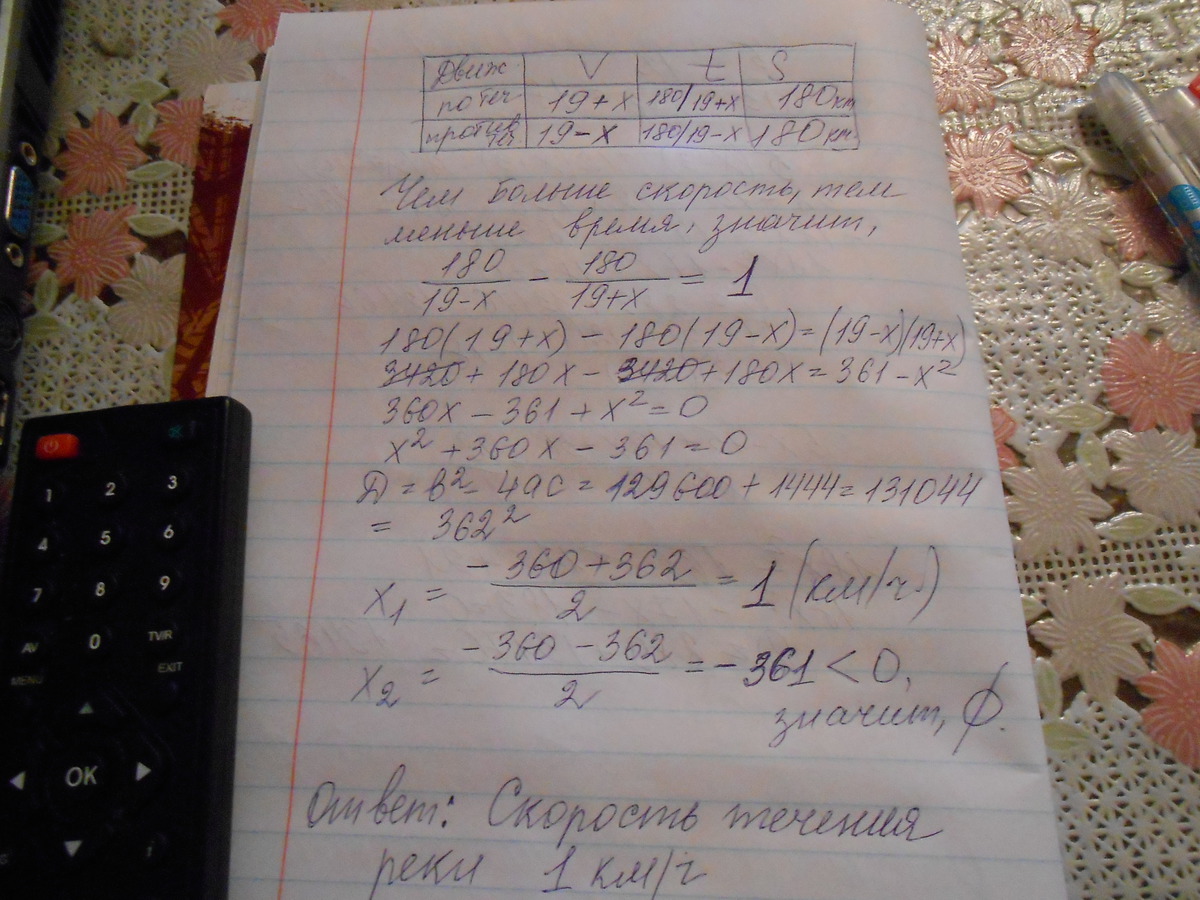 Движ V t S
по теч 19+x 180/19+x 180км
против теч. 19-x 180/19-x 180км.
Чем больше скорость, тем
меньше время, значит,
180/19-x - 180/19+x = 1
180(19+x) - 180(19-x) = (19-x)(19+x)
3420 + 180x - 3420 + 180x = 361 - x²
360x - 361 + x² = 0
x² + 360x - 361 = 0
Д = в² - 4ac = 129600 + 1444 = 131044
= 362²
x₁ = -360+362/2 = 1 (км/ч.)
x₂ = -360-362/2 = -361 < 0,
значит, ∅.
Ответ: Скорость течения
реки 1 км/ч
1 2 3
4 5 6
7 8 9
AV 0 TV/R
MENU EXIT
OK
i